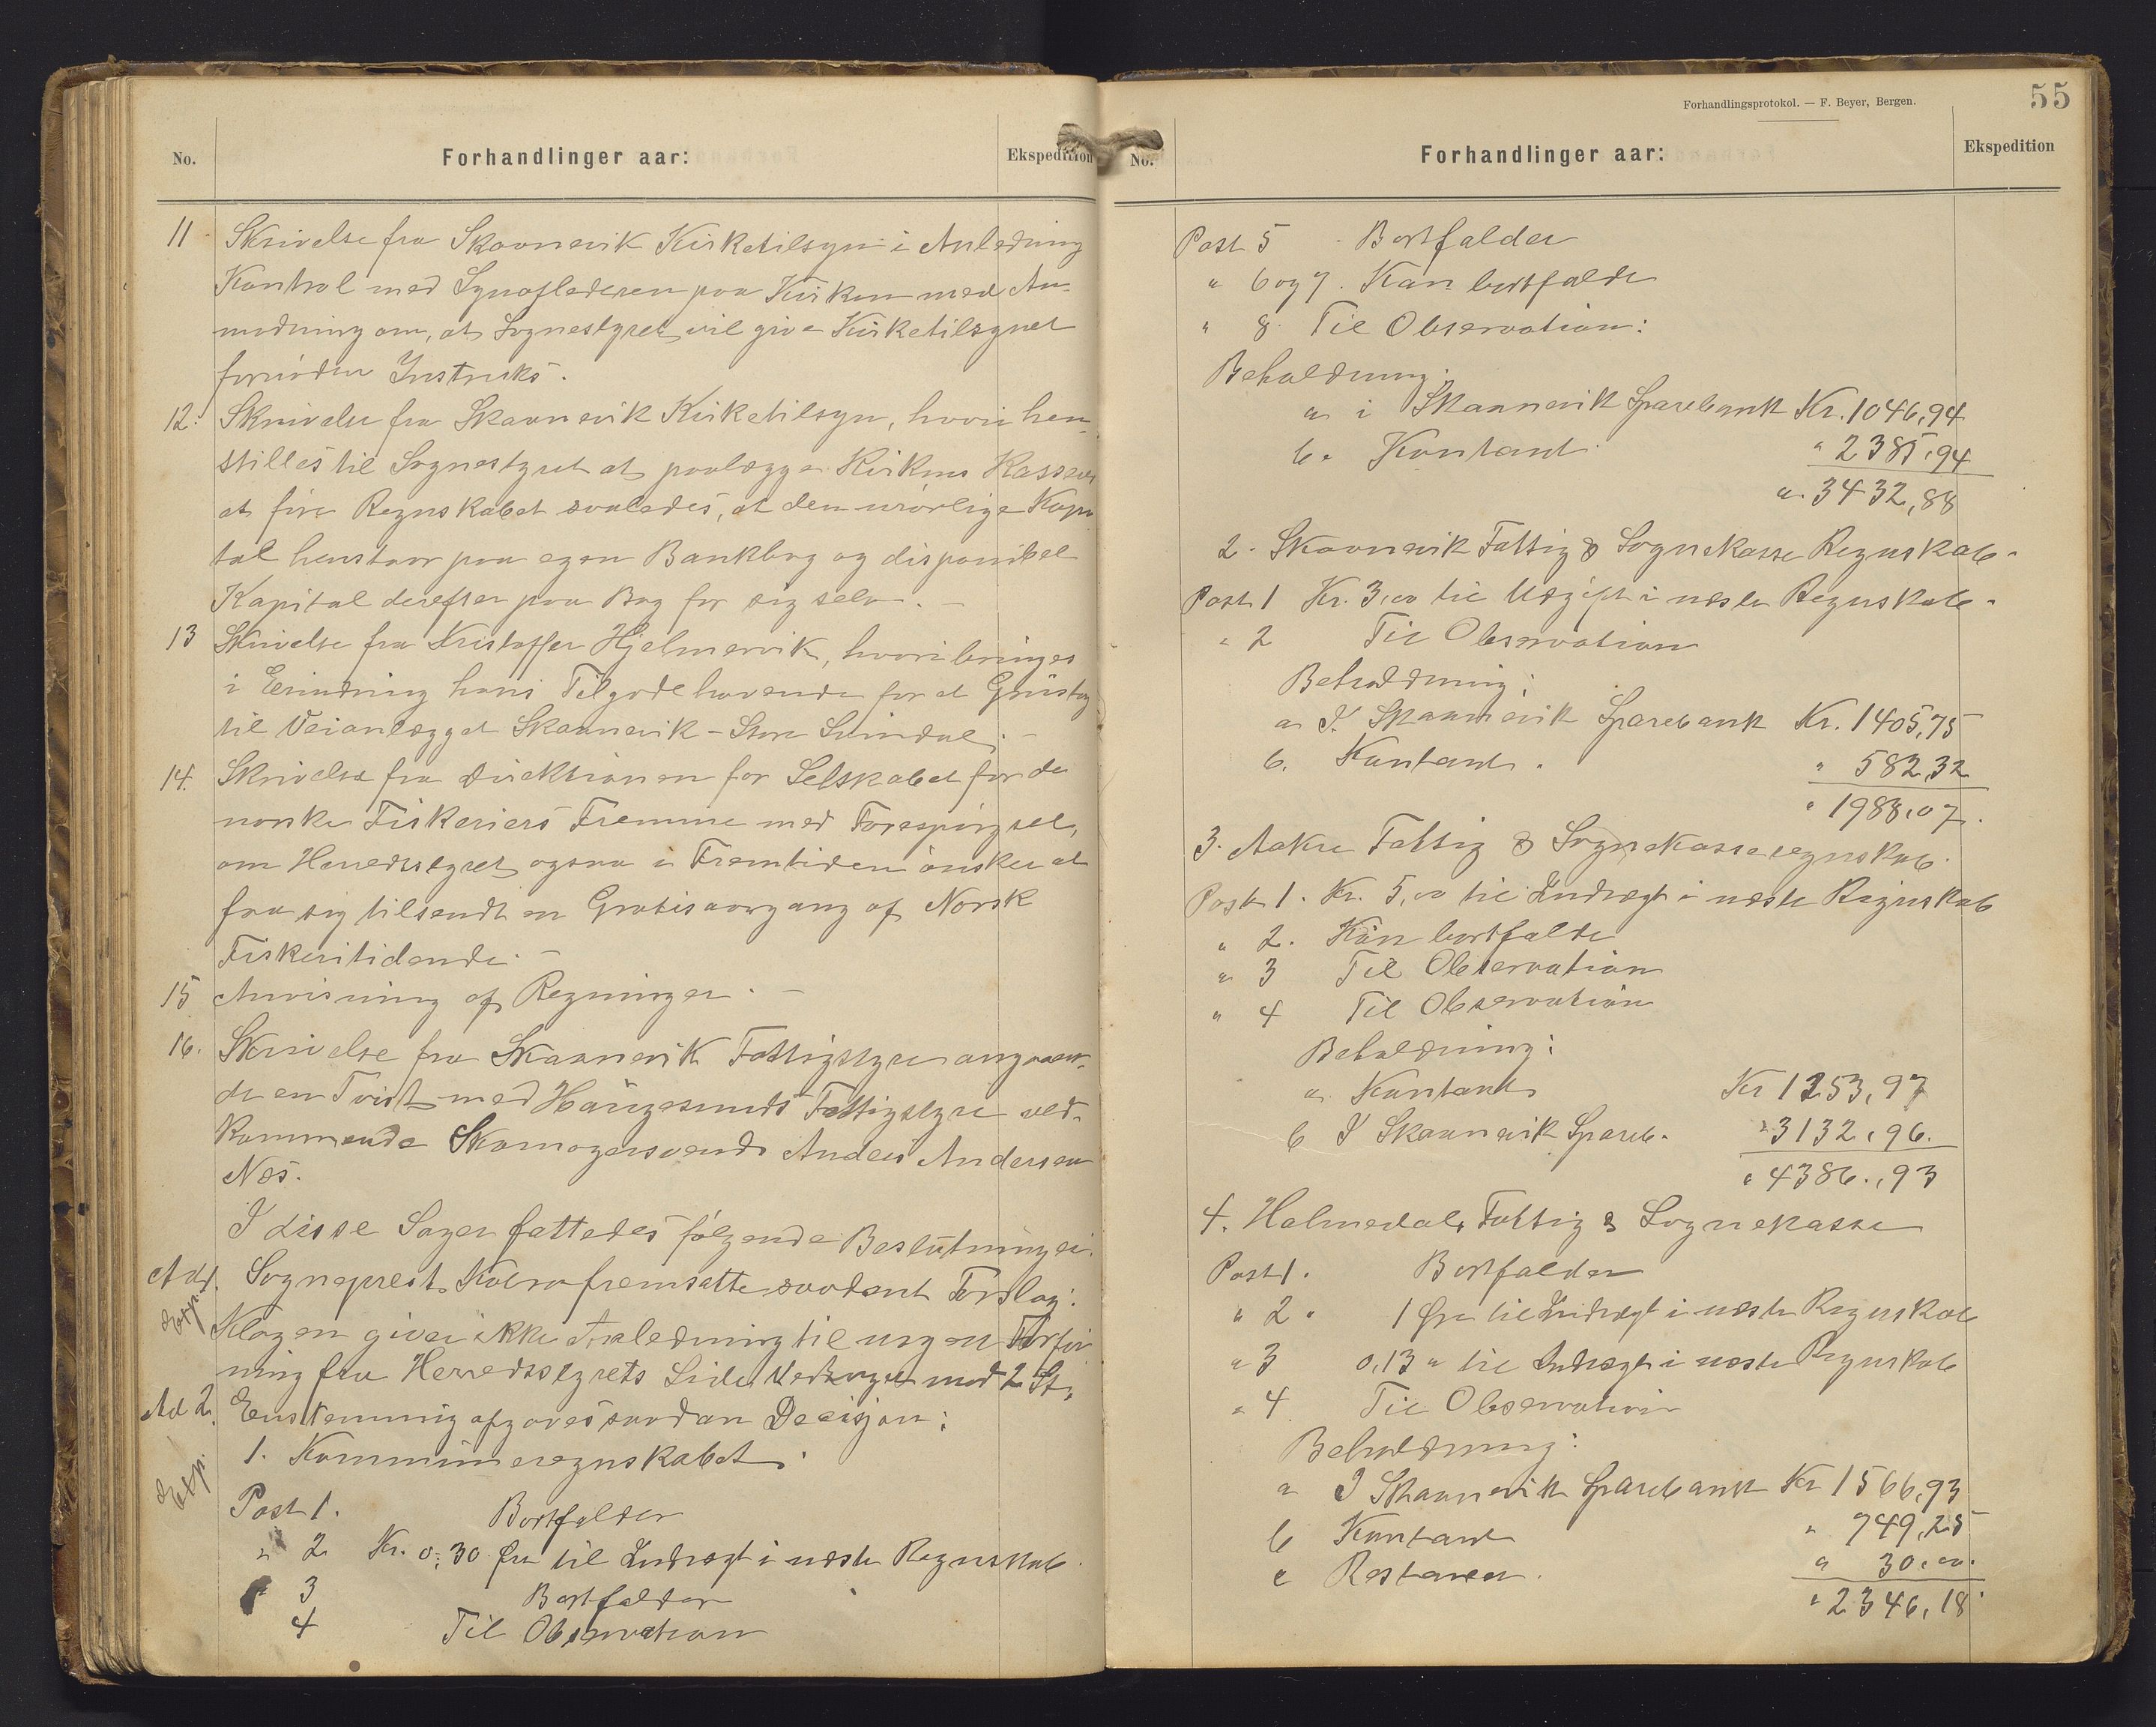 No.
Forhandlinger aar:
Ekspedition
11 Skrivelse fra Skaanevik Kirketilsyn i Anledning
Kontrol med Synafladeren paa Kirken med An-
modning om, at Sognestyret vil give Kirketilsynet
fornöden Instruks.
12. Skrivelse fra Skaanevik Kirketilsyn, hvori hen-
stilles til Sognestyret at paalægge Kirkens Kasserer
at före Regnskabet saaledes, at den urörlige Kapi
tal henstaar paa egen Bankbog og disponibel
Kapital derefter paa Bog for sig selv. -
13 Skrivelse fra Kristoffer Hjelmervik, hvori bringes
i Erindring hans Tilgodehavende for et Grüstag
til Veianlægget Skaanevik - Store Svindal. -
14. Skrivelse fra Direktionen for Selskabet for de
norske Fiskeriers Fremme med Forespörgsel,
om Herredsstyret ogsaa i Fremtiden önsker at
faa sig tilsendt en Gratisaargang af Norsk
Fiskeritidende. -
15 Anvisning af Regninger. -
16. Skrivelse fra Skaanevik Fattigstyre angaaen-
de en Tvist med Haugesunds Fattigstyre ved-
kommende Skomagersvend Anders Andersen
Næs.
I disse Sager fattedes fölgende Beslutninger.
Ad 1. Sogneprest Kolsrö fremsatte saadant Forslag:
Exp. Klagen giver ikke Anledning til nogen Forföi
ning fra Herredsstyrets Side. Vedtaget mod 2 St.
Ad 2. Enstemmig afgaves saadan Decisjon:
Exp. 1. Kommuneregnskabet.
Post 1. Bortfalder
" 2 Kr. 0,30 Öre til Indtægt i næste Regnskab.
" 3 Bortfalder
4 Til Observation
Forhandlingsprotokol. — F. Beyer, Bergen.
55
No.
Forhandlinger aar:
Ekspedition
Post 5 Bortfalder
" 6 og 7. Kan bortfalde
" 8. Til Observation:
Beholdning:
a i Skaanevik Sparebank Kr. 1046,94
b. Kontant " 2385,94
". 3432,88
2. Skaanevik Fattig & Sognekasse Regnskab.
Post 1 Kr. 3,00 til Udgift i næste Regnskab.
" 2 Til Observation
Beholdning:
a I Skaanevik Sparebank Kr. 1405,75
b. Kontant. " 582,32
" 1988,07.
3. Aakre Fattig & Sognekasseregnskab.
Post 1. Kr. 5,00 til Indtægt i næste Regnskab
" 2. Kan bortfalde
" 3 Til Observation
" 4 Til Observation
Beholdning:
a. Kontant Kr 1253,97
b I Skaanevik Spareb. " 3132,96.
" 4386,93
4. Holmedals Fattig & Sognekasse
Post 1. Bortfalder
" 2. 1 Öre til Indtægt i næste Regnskab
" 3 0,13 " til Indtægt i næste Regnskab
" 4 Til Observation
Beholdning:
a I Skaanevik Sparebank Kr 1566,93
b Kontant " 749,25
c Restancer. " 30,00.
" 2346,18